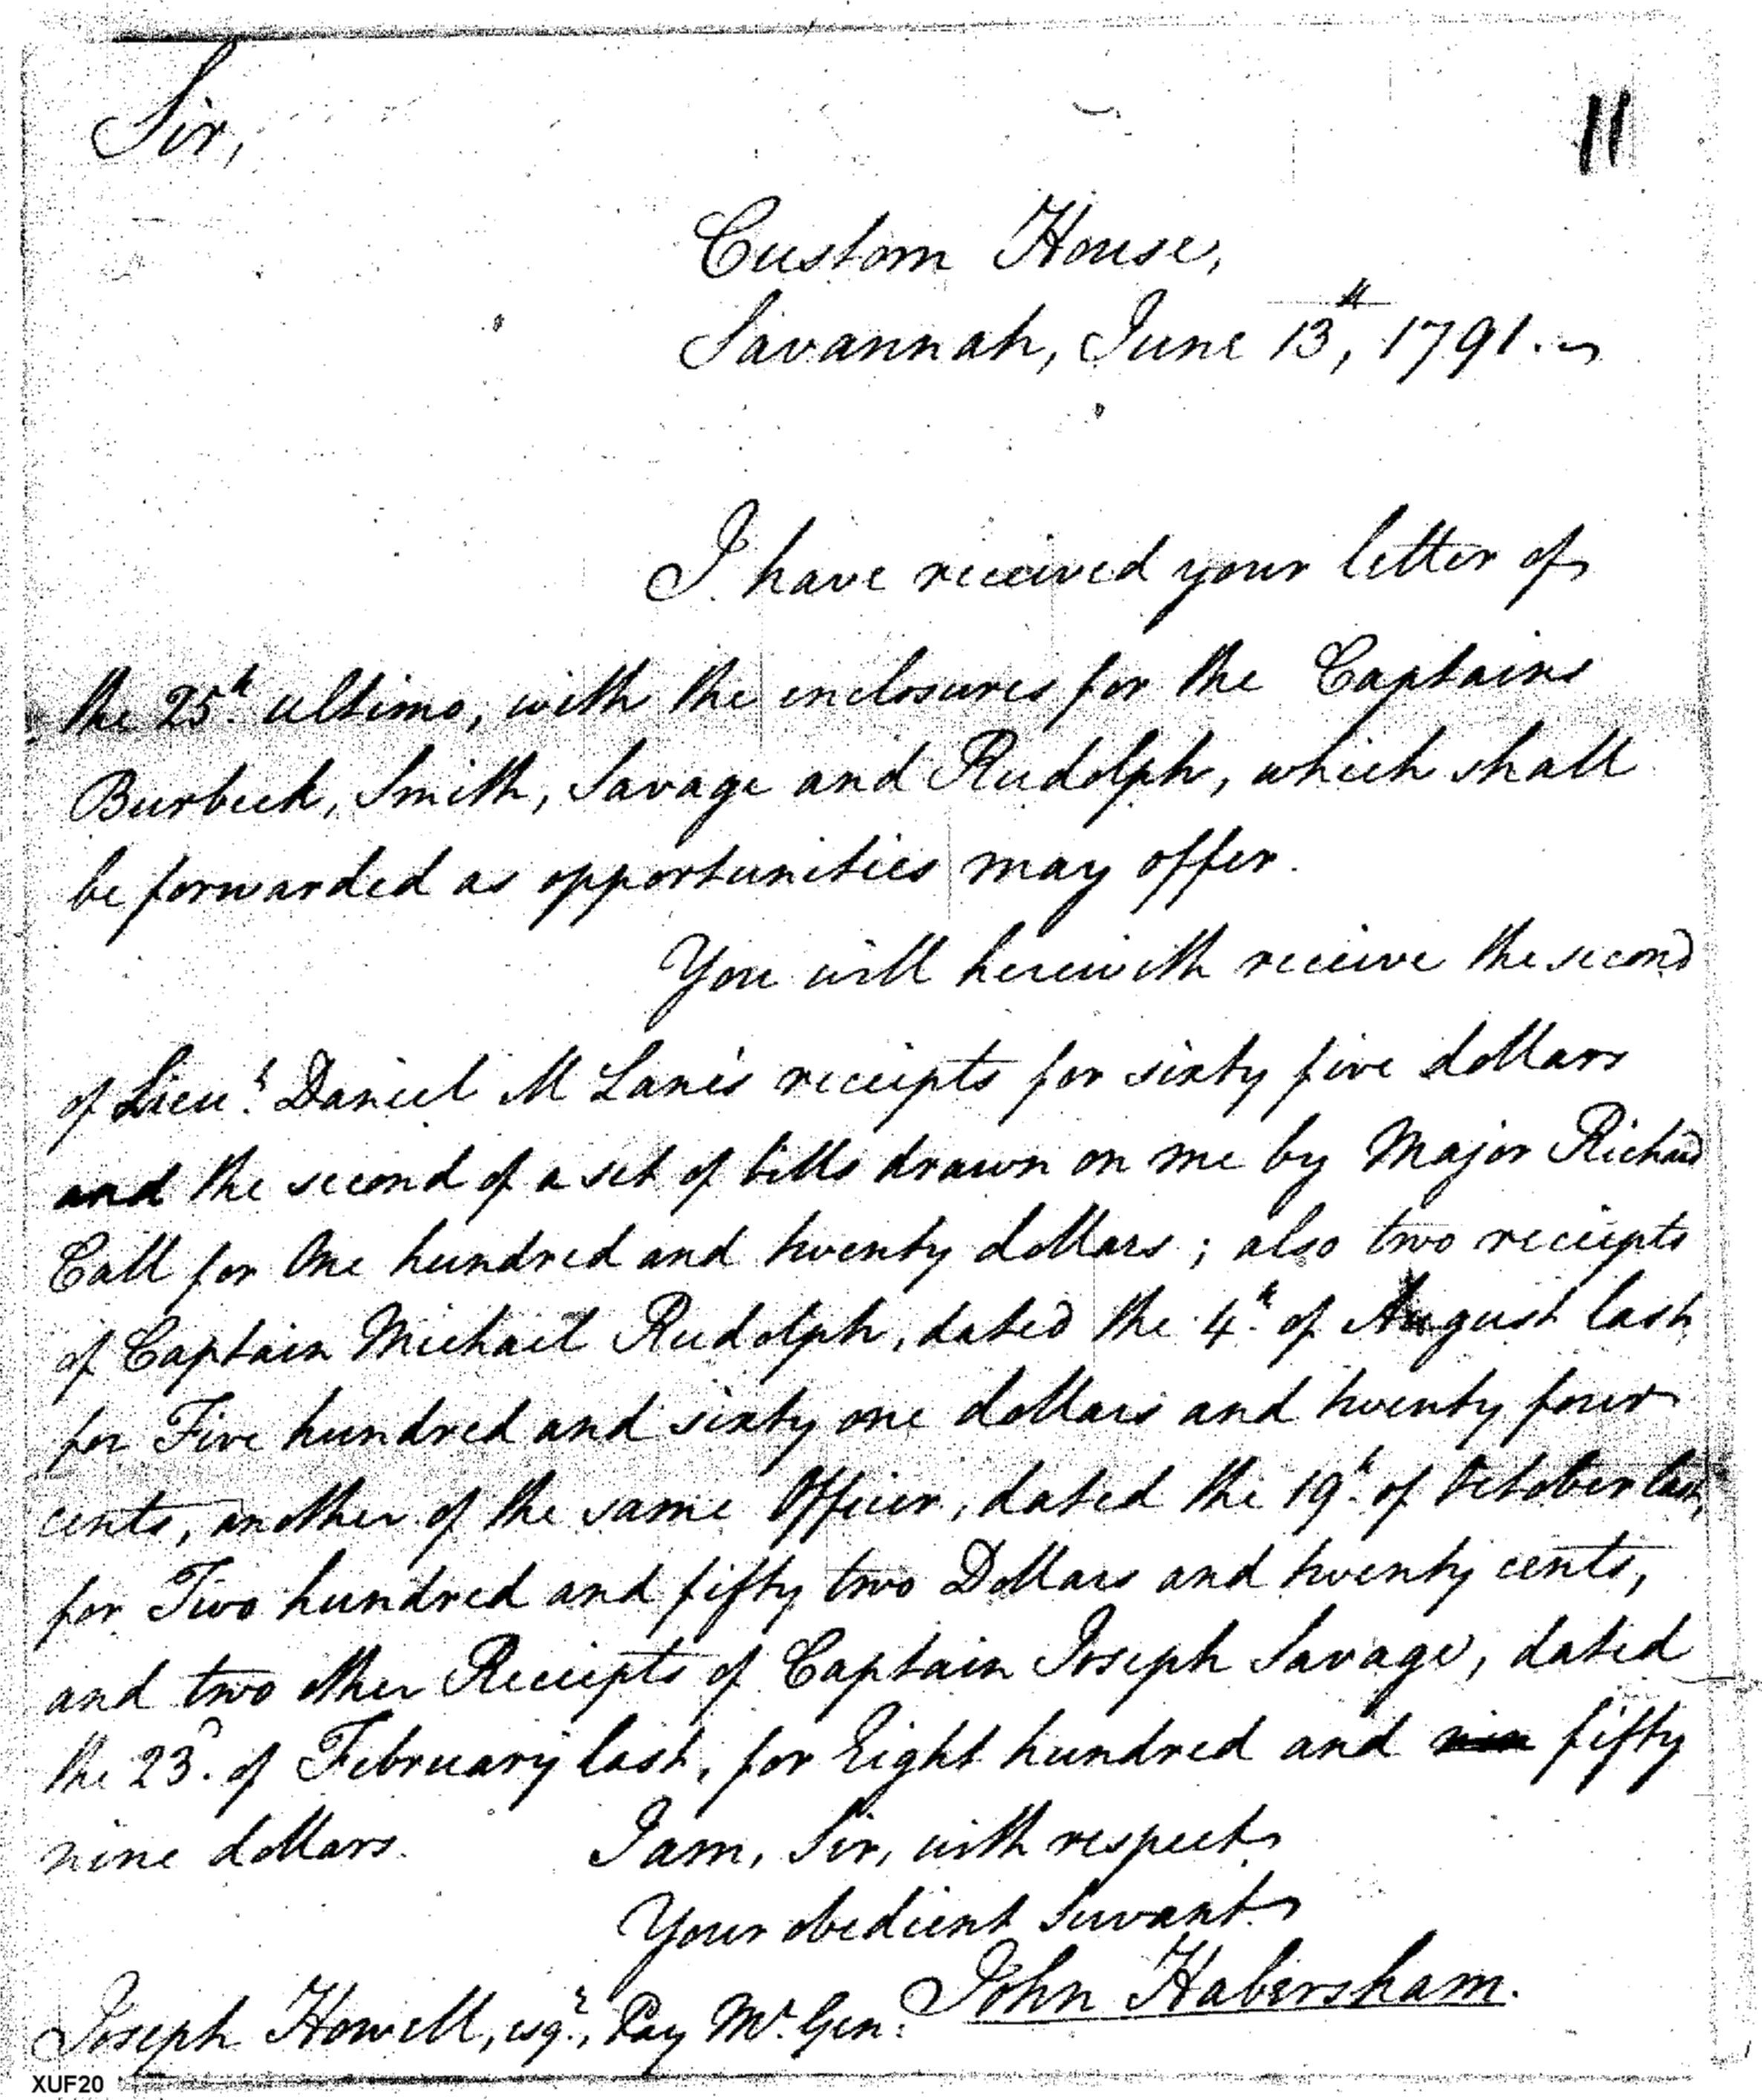 Sir,
11
Custom House,
Savannah, June 13th, 1791.
I have received your letter of
the 25th ultimo, with the enclosures for the Captains
Burbeck, Smith, Savage and Rudolph, which shall
be forwarded as opportunities may offer.
You will herewith receive the second
of Lieut. Daniel M Lane's receipts for sixty five dollars
and the second of a set of bills drawn on me by Major Richard
Call for One hundred and twenty dollars; also two receipts
of Captain Michael Rudolph, dated the 4th of August last,
for Five hundred and sixty one dollars and twenty four
cents, another of the same Officer, dated the 19th of October last,
for Two hundred and fifty two Dollars and twenty cents,
and two other Receipts of Captain Joseph Savage, dated
the 23d of February last, for Eight hundred and nin fifty
nine dollars. I am, Sir, with respect,
Your obedient Servant.
John Habersham.
Joseph Howell, esqr., Pay Mr. Gen:
XUF20